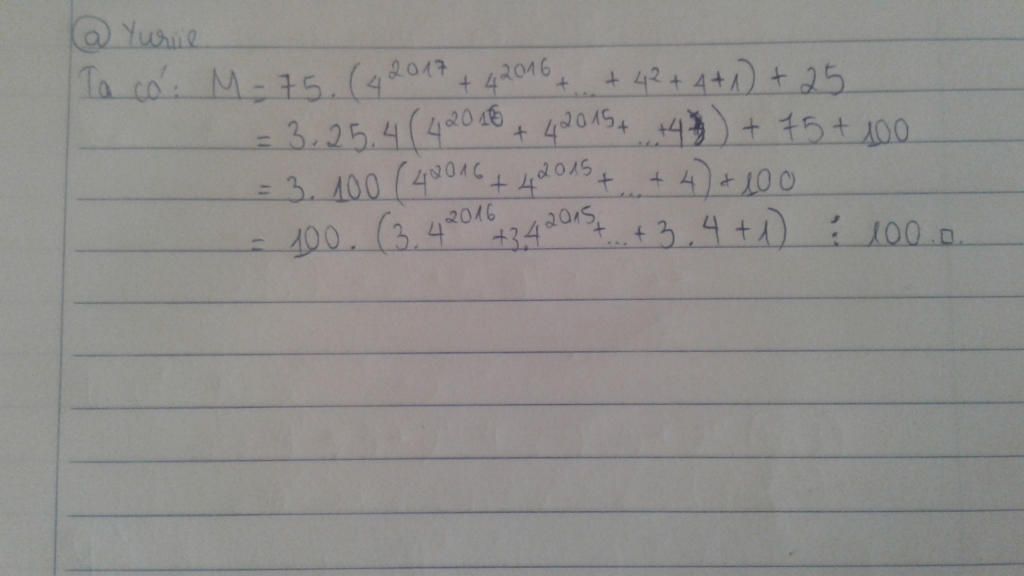 @ Yuriie
Ta có: M = 75.(4^2017 + 4^2016 + ... + 4^2 + 4 + 1) + 25
= 3.25.4(4^2016 + 4^2015 + ... + 4) + 75 + 100
= 3.100(4^2016 + 4^2015 + ... + 4) + 100
= 100.(3.4^2016 + 3.4^2015 + ... + 3.4 + 1) ⋮ 100.□.